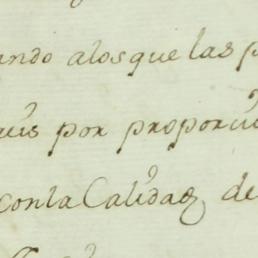 ando alos que las p
por proporci
con la Calidad de